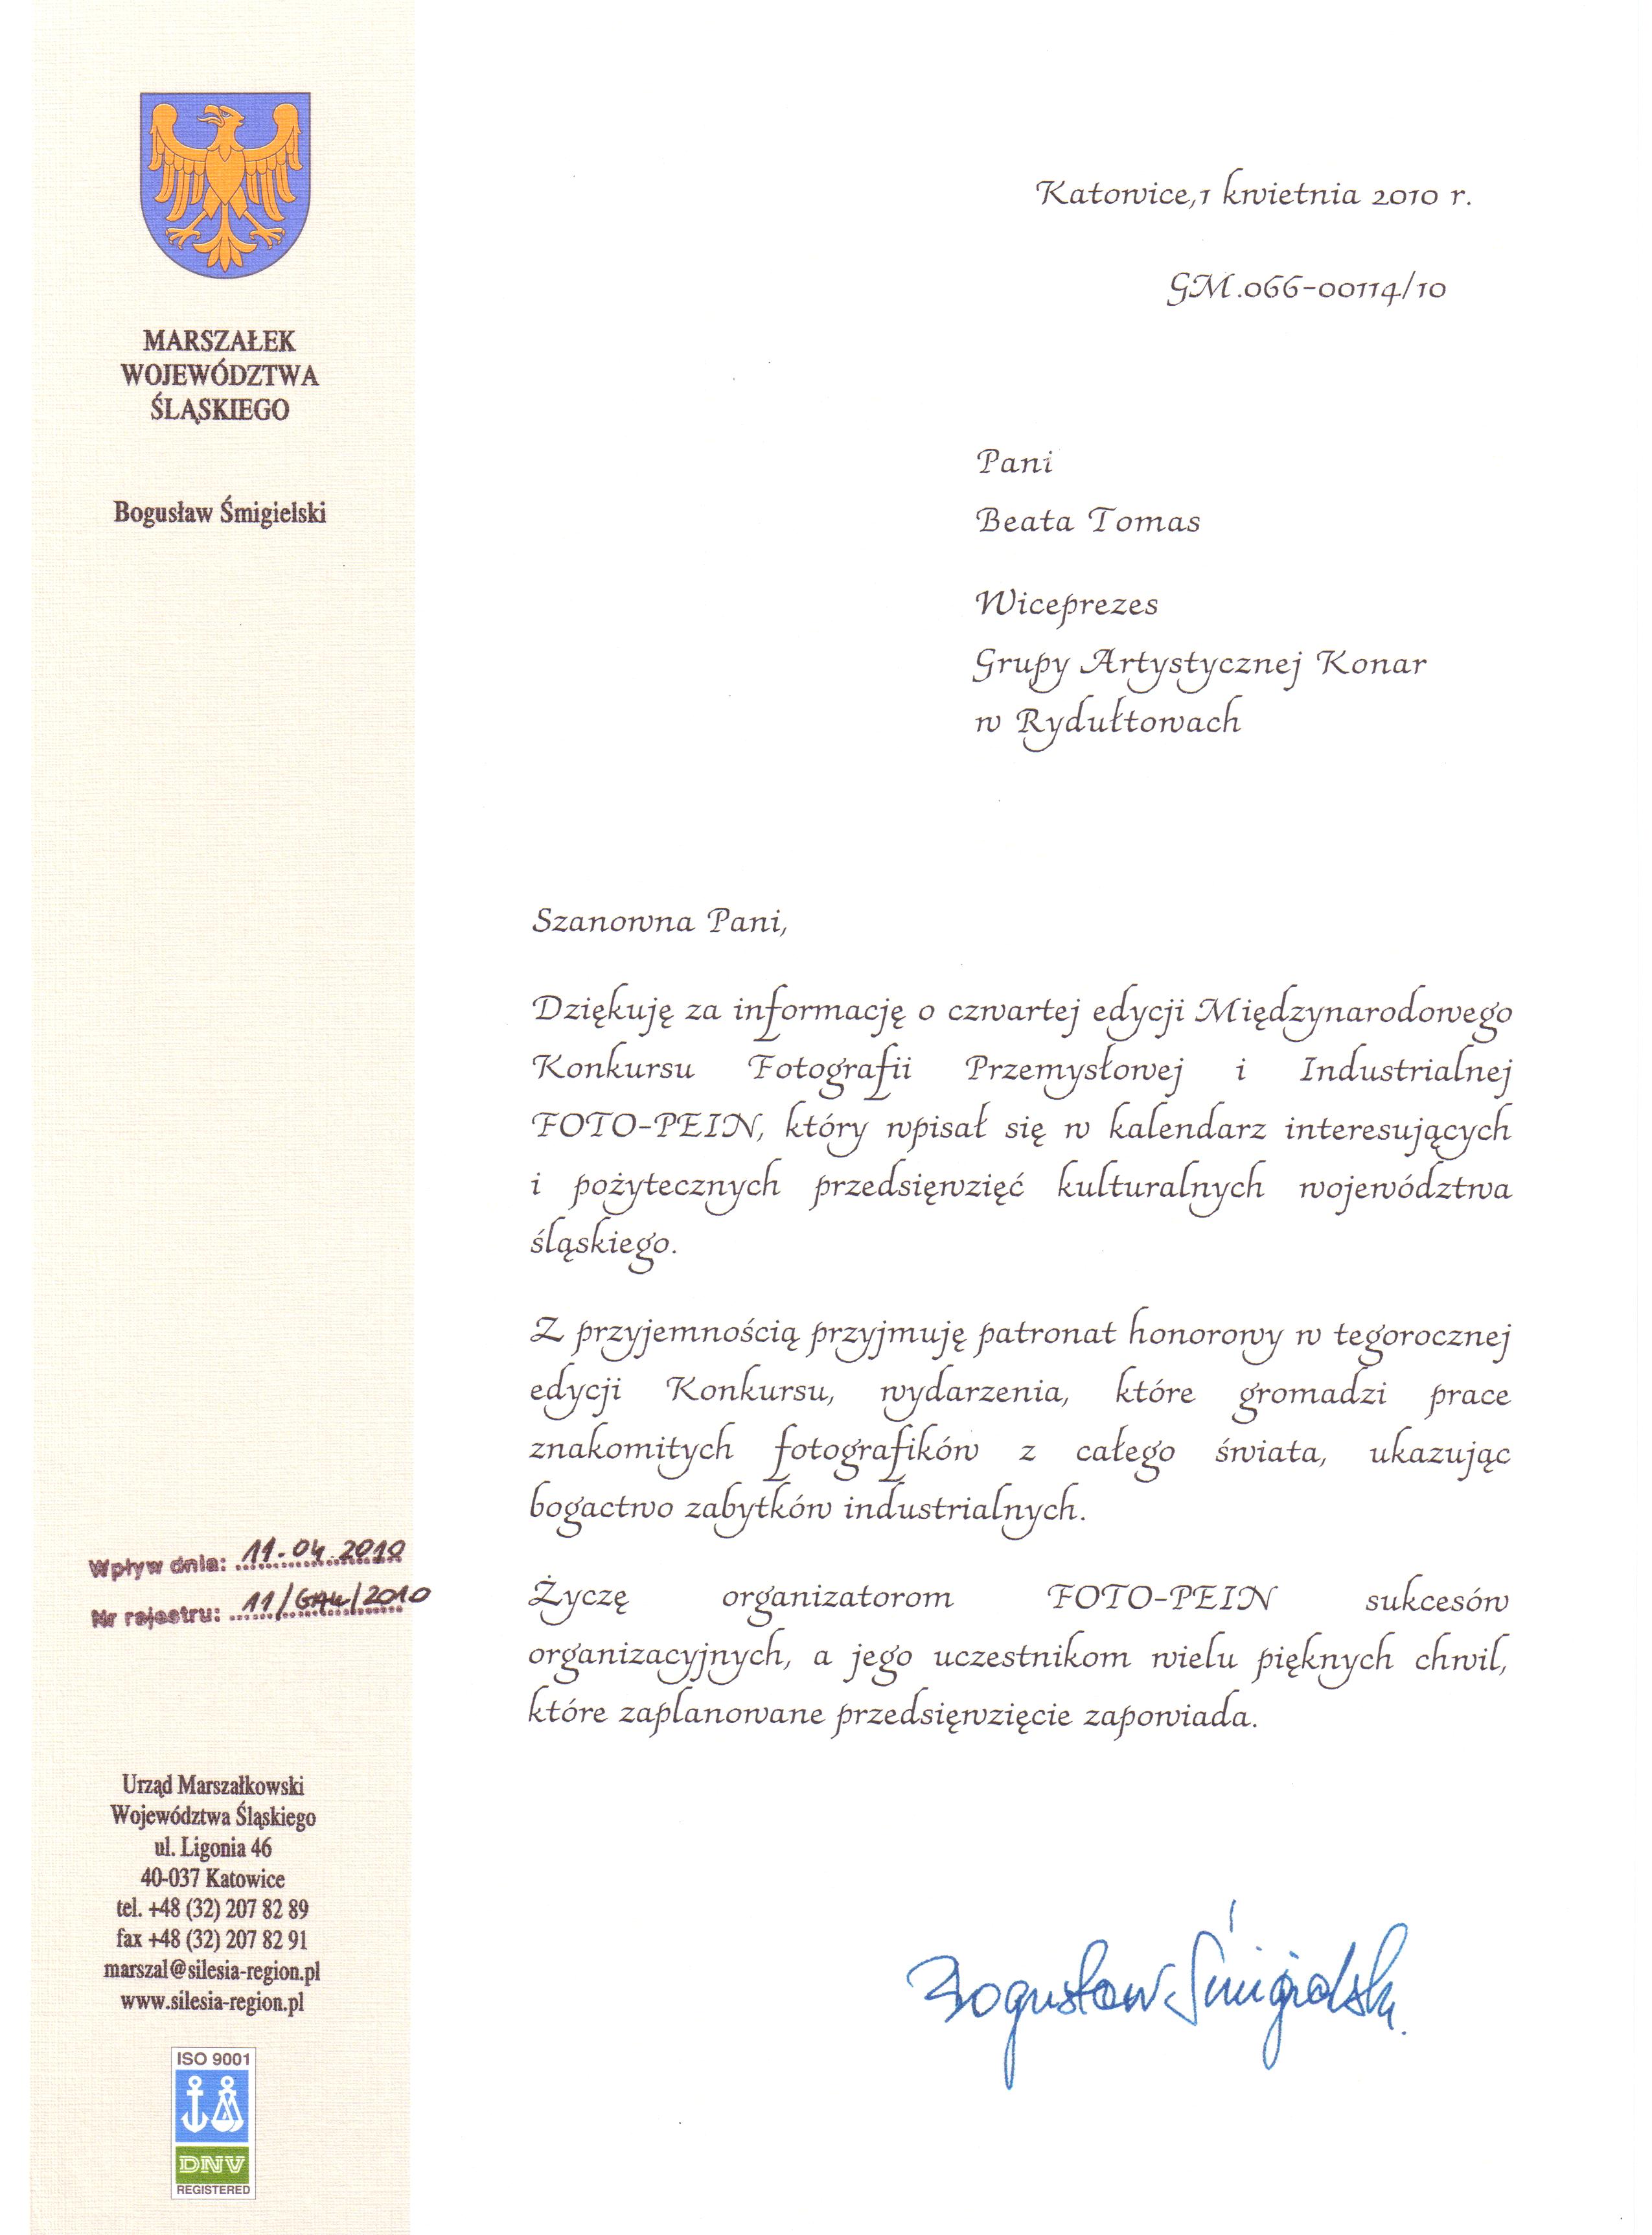 MARSZAŁEK
WOJEWÓDZTWA
ŚLĄSKIEGO
Bogusław Śmigielski
Katowice,1 kwietnia 2010 r.
GM.066-00114/10
Pani
Beata Tomas
Wiceprezes
Grupy Artystycznej Konar
w Rydułtowach
Szanowna Pani,
Dziękuję za informację o czwartej edycji Międzynarodowego
Konkursu Fotografii Przemysłowej i Industrialnej
FOTO-PEIN, który wpisał się w kalendarz interesujących
i pożytecznych przedsięwzięć kulturalnych województwa
śląskiego.
Z przyjemnością przyjmuję patronat honorowy w tegorocznej
edycji Konkursu, wydarzenia, które gromadzi prace
znakomitych fotografików z całego świata, ukazując
bogactwo zabytków industrialnych.
Życzę organizatorom FOTO-PEIN sukcesów
organizacyjnych, a jego uczestnikom wielu pięknych chwil,
które zaplanowane przedsięwzięcie zapowiada.
Bogusław Śmigielski
Wpływ dnia: 11.04.2010
Nr rejestru:
Urząd Marszałkowski
Województwa Śląskiego
ul. Ligonia 46
40-037 Katowice
tel. +48 (32) 207 82 89
fax +48 (32) 207 82 91
marszal@silesia-region.pl
www.silesia-region.pl
ISO 9001
DNV
REGISTERED